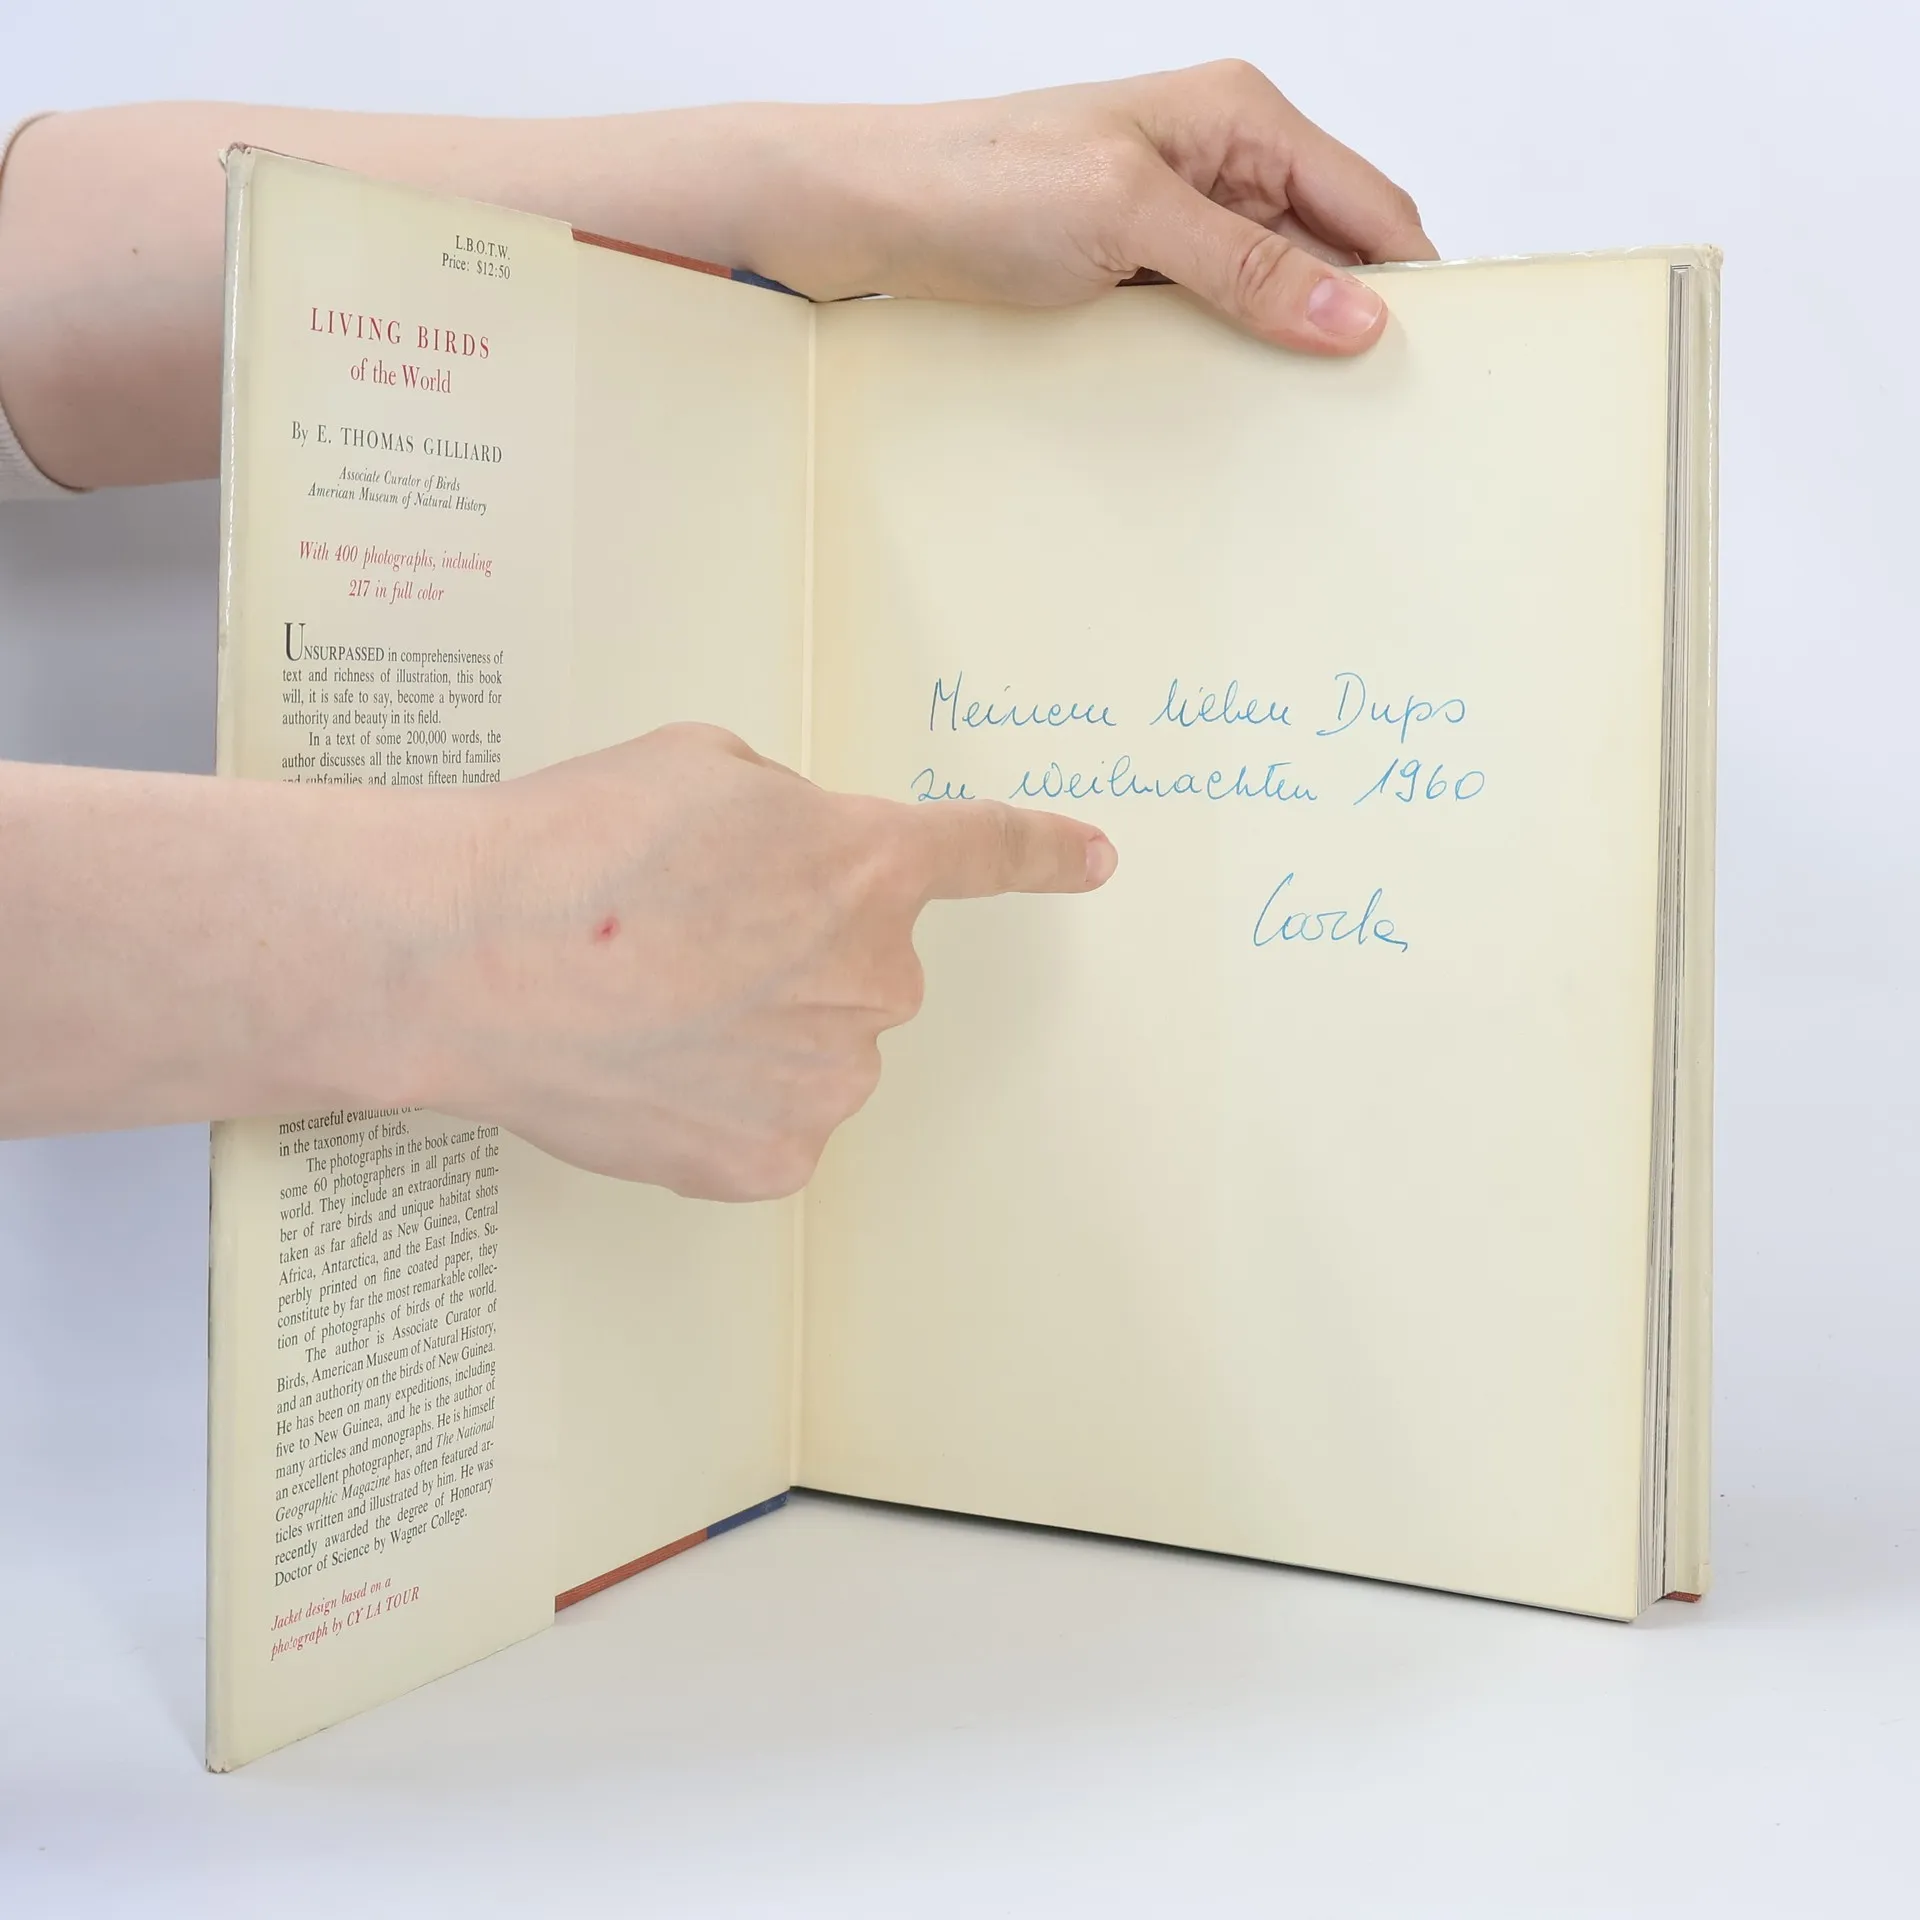 L.B.O.T.W.
Price: $12:50
LIVING BIRDS
of the World
By E. THOMAS GILLIARD
Associate Curator of Birds
American Museum of Natural History
With 400 photographs, including
217 in full color
UNSURPASSED in comprehensiveness of
text and richness of illustration, this book
will, it is safe to say, become a byword for
authority and beauty in its field.
In a text of some 200,000 words, the
author discusses all the known bird families
and subfamilies and almost fifteen hundred
most careful evaluation of
in the taxonomy of birds.
The photographs in the book came from
some 60 photographers in all parts of the
world. They include an extraordinary num-
ber of rare birds and unique habitat shots
taken as far afield as New Guinea, Central
Africa, Antarctica, and the East Indies. Su-
perbly printed on fine coated paper, they
constitute by far the most remarkable collec-
tion of photographs of birds of the world.
The author is Associate Curator of
Birds, American Museum of Natural History,
and an authority on the birds of New Guinea.
He has been on many expeditions, including
five to New Guinea, and he is the author of
many articles and monographs. He is himself
an excellent photographer, and The National
Geographic Magazine has often featured ar-
ticles written and illustrated by him. He was
recently awarded the degree of Honorary
Doctor of Science by Wagner College.
Jacket design based on a
photograph by CY LA TOUR
Meinem lieben Dups
zu Weihnachten 1960
Carla